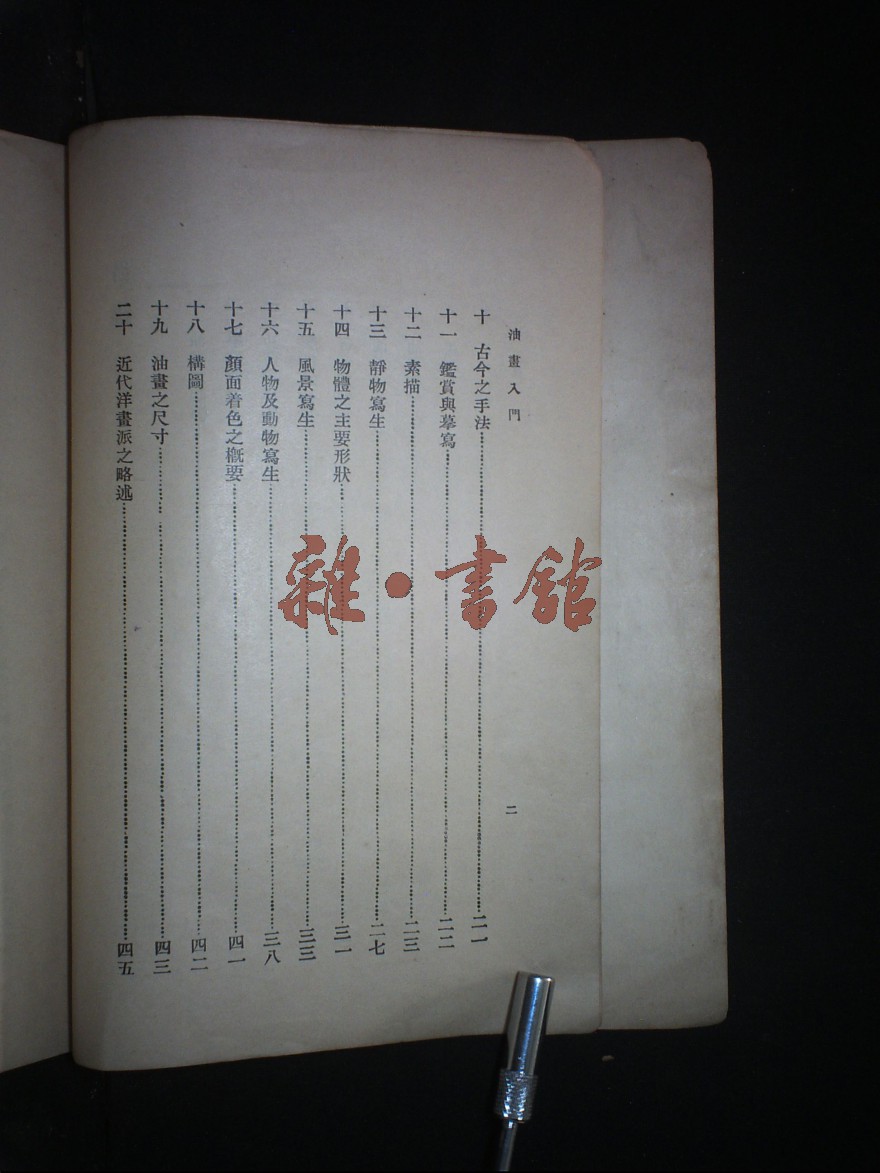 油畫入門
二
十 古今之手法……二一
十一 鑑賞與摹寫……二二
十二 素描……二三
十三 靜物寫生……二七
十四 物體之主要形狀……三一
十五 風景寫生……三三
十六 人物及動物寫生……三八
十七 顏面着色之概要……四一
十八 構圖……四二
十九 油畫之尺寸……四三
二十 近代洋畫派之略述……四五
雜·書館